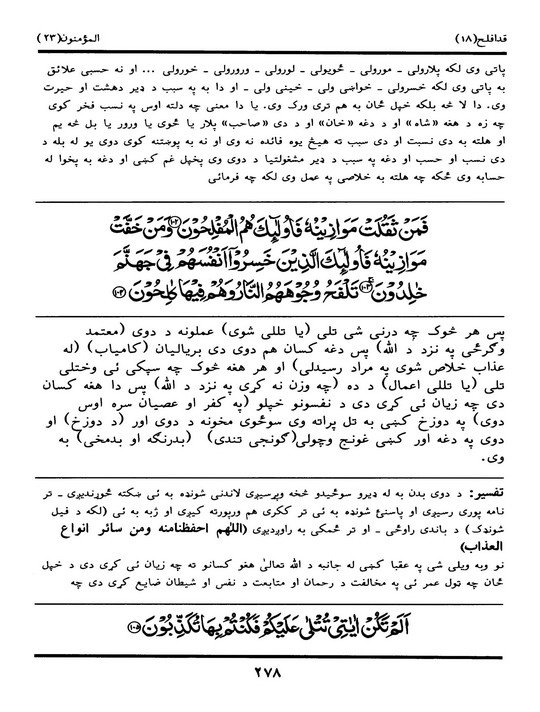 قدافلح(۱۸) المؤمنون(۲۳)
پاتې وی لکه پلارولی - مورولی - ځویولی - لورولی - ورورولی - خورولی ... او نه حسبی علائق
به پاتې وی لکه خسرولی - خواښې ولی - خینی ولی - او دا به په سبب د ډیر دهشت او حیرت
وی. دا لا څه بلکه خپل ځان به هم ترې ورک وی. یا دا معنی چه دلته اوس په نسب فخر کوی
چه زه د هغه «شاه» او د دغه «خان» او د دې «صاحب» پلار یا ځوی یا ورور یا بل څه یم
او هلته به دې نسبت او دې سبب ته هیڅ یوه فائده نه وی او نه به پوښتنه کوی دوی یو له بله د
دې نسب او حسب او دغه په سبب د ډیر مشغولتیا د دوی وی پخپل غم کښې او دغه به پخوا له
حسابه وی ځکه چه هلته به خلاصی په عمل وی لکه چه فرمائی
فَمَنْ ثَقُلَتْ مَوَازِيْنُهٗ فَاُولٰٓئِكَ هُمُ الْمُفْلِحُوْنَ ﴿۱۰۲﴾ وَمَنْ خَفَّتْ
مَوَازِيْنُهٗ فَاُولٰٓئِكَ الَّذِيْنَ خَسِرُوْٓا اَنْفُسَهُمْ فِيْ جَهَنَّمَ
خٰلِدُوْنَ ﴿۱۰۳﴾ تَلْفَحُ وُجُوْهَهُمُ النَّارُ وَهُمْ فِيْهَا كٰلِحُوْنَ ﴿۱۰۴﴾
پس هر څوک چه درنې شی تلی (یا تللی شوی) عملونه د دوی (معتمد
وګرځی په نزد د الله) پس دغه کسان هم دوی دی بریالیان (کامیاب) (له
عذاب خلاص شوی په مراد رسیدلی) او هر هغه څوک چه سپکې ئی وختلې
تلی (یا تللی اعمال) د ده (چه وزن نه کړی په نزد د الله) پس دا هغه کسان
دی چه زیان ئی کړی دی د نفسونو خپلو (په کفر او عصیان سره اوس
دوی) په دوزخ کښې به تل پراته وی سوځوی مخونه د دوی اور (د دوزخ) او
دوی په دغه اور کښې غونج وچولی(ګونجې تندی) (بدرنګه او بدمخی) به
وی.
تفسیر: د دوی بدن به له ډیرو سوځیدو څخه وپرسیږی لاندنی شونډه به ئی ښکته ځوړندیږی - تر
نامه پورې رسیږی او پاسنۍ شونډه به ئی تر ککرې هم ورپورته کیږی او ژبه به ئی (لکه د فیل
شونډک) د باندې راوځی - او تر ځمکې به راوړدیږی (اللهم احفظنامنه ومن سائر انواع
العذاب)
نو وبه ویلی شی په عقبا کښې له جانبه د الله تعالیٰ هغو کسانو ته چه زیان ئی کړی دی د خپل
ځان چه ټول عمر ئی په مخالفت د رحمان او متابعت د نفس او شیطان ضایع کړی دی چه
اَلَمْ تَكُنْ اٰيٰتِيْ تُتْلٰى عَلَيْكُمْ فَكُنْتُمْ بِهَا تُكَذِّبُوْنَ ﴿۱۰۵﴾
۲۷۸